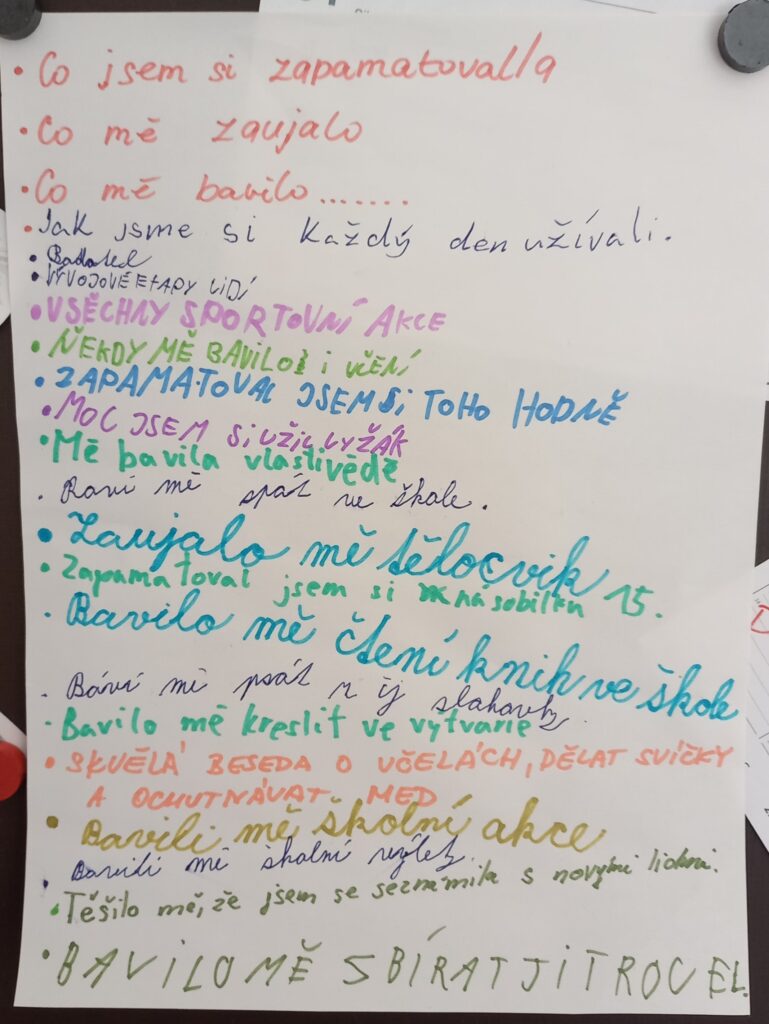 • Co jsem si zapamatoval/a
• Co mě zaujalo
• Co mě bavilo.......
• Jak jsme si každý den užívali.
• Badatel
• VÝVOJOVÉ ETAPY LIDÍ
• VŠECHNY SPORTOVNÍ AKCE
• NĚKDY MĚ BAVILO i UČENÍ
• ZAPAMATOVAL JSEM Si TOHO HODNĚ
• MOC JSEM Si UŽIL LYŽÁK
• Mě bavila vlastivědě
. Baví mě spát ve škole.
• Zaujalo mě tělocvik
• Zapamatoval jsem si násobilku 15.
• Bavilo mě čtení knih ve škole
. Báví mě psát
• Bavilo mě kreslit ve vytvarie
• SKVĚLÁ BESEDA O VČELÁCH, DĚLAT SVÍČKY
A OCHUTNÁVAT MED
• Bavili mě školní akce
• Bavili mě školní výlety.
• Těšilo mě, že jsem se seznámila s novými lidmi.
• BAVILO MĚ SBÍRAT JITROCEL.